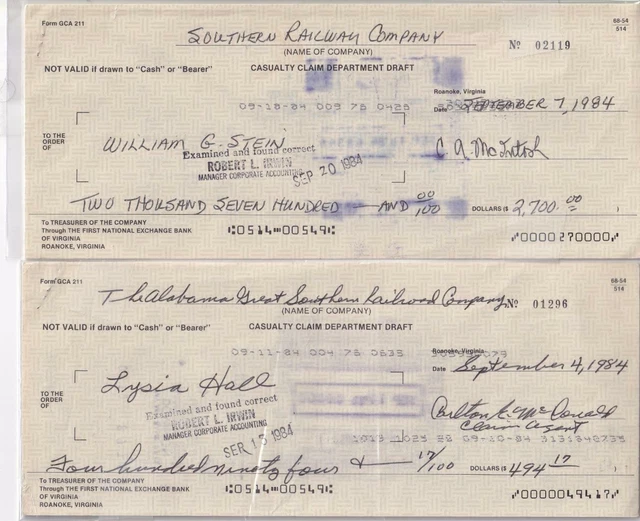 Form GCA 211
68-54
514
SOUTHERN RAILWAY COMPANY
(NAME OF COMPANY)
No 02119
NOT VALID if drawn to "Cash" or "Bearer"
CASUALTY CLAIM DEPARTMENT DRAFT
Roanoke, Virginia
09-18-84 009 75 0425
Date SEPTEMBER 7, 1984
TO THE
ORDER
OF
WILLIAM G. STEIN
C A McIntosh
Examined and found correct
ROBERT L. IRWIN
MANAGER CORPORATE ACCOUNTING
SEP 20 1984
TWO THOUSAND SEVEN HUNDRED — AND 00/100 DOLLARS ($ 2,700.00 )
To TREASURER OF THE COMPANY
Through THE FIRST NATIONAL EXCHANGE BANK
OF VIRGINIA
ROANOKE, VIRGINIA
⑆0514⑉0054⑆
⑈0000270000⑈
Form GCA 211
68-54
514
The Alabama Great Southern Railroad Company
(NAME OF COMPANY)
No 01296
NOT VALID if drawn to "Cash" or "Bearer"
CASUALTY CLAIM DEPARTMENT DRAFT
Roanoke, Virginia
09-11-84 004 75 0635
Date September 4, 1984
TO THE
ORDER
OF
Lysia Hall
Carlton E. McDonald
Claim Agent
Examined and found correct
ROBERT L. IRWIN
MANAGER CORPORATE ACCOUNTING
SER 13 1984
Four hundred ninety four & — 17/100 DOLLARS ($ 494 17 )
To TREASURER OF THE COMPANY
Through THE FIRST NATIONAL EXCHANGE BANK
OF VIRGINIA
ROANOKE, VIRGINIA
⑆0514⑉0054⑆
⑈0000049417⑈